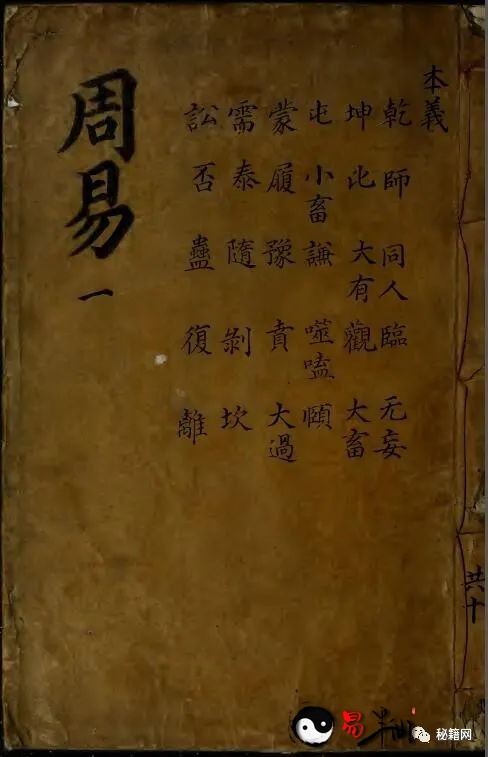 周易一
本義
乾 坤 屯 蒙 需 訟
師 比 小畜 履 泰 否
同人 大有 謙 豫 隨 蠱
臨 觀 噬嗑 賁 剝 復
无妄 大畜 頤 大過 坎 離
共十
易半仙
秘籍网